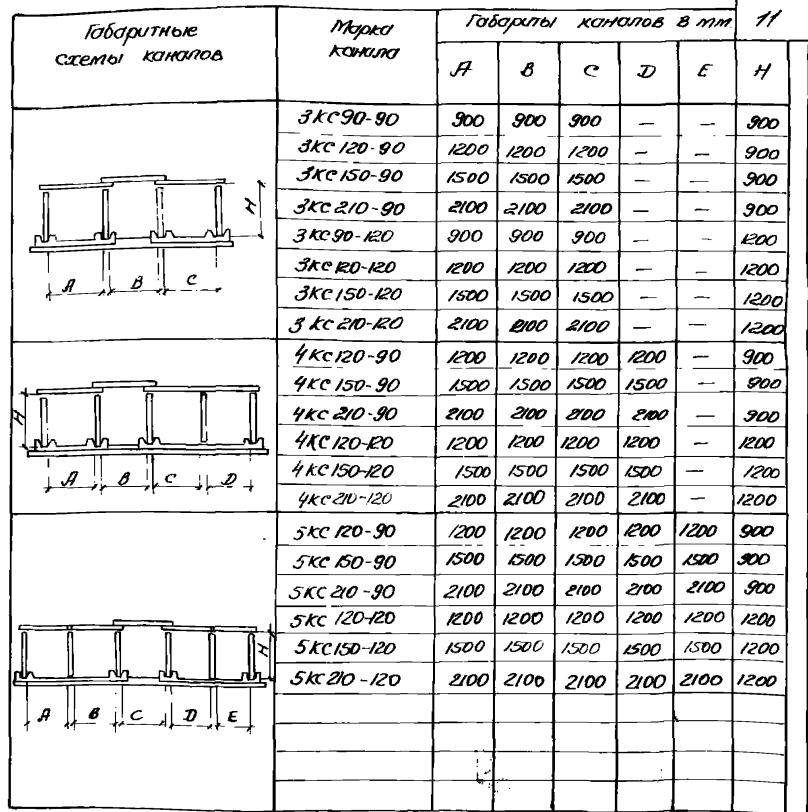 Габаритные схемы каналов | Марка канала | Габариты каналов в мм | 11
A | B | C | D | E | H
3КС90-90 | 900 | 900 | 900 | — | — | 900
3КС120-90 | 1200 | 1200 | 1200 | — | — | 900
3КС150-90 | 1500 | 1500 | 1500 | — | — | 900
3КС210-90 | 2100 | 2100 | 2100 | — | — | 900
3КС90-120 | 900 | 900 | 900 | — | — | 1200
3КС120-120 | 1200 | 1200 | 1200 | — | — | 1200
3КС150-120 | 1500 | 1500 | 1500 | — | — | 1200
3КС210-120 | 2100 | 2100 | 2100 | — | — | 1200
H
A B C
4КС120-90 | 1200 | 1200 | 1200 | 1200 | — | 900
4КС150-90 | 1500 | 1500 | 1500 | 1500 | — | 900
4КС210-90 | 2100 | 2100 | 2100 | 2100 | — | 900
4КС120-120 | 1200 | 1200 | 1200 | 1200 | — | 1200
4КС150-120 | 1500 | 1500 | 1500 | 1500 | — | 1200
4КС210-120 | 2100 | 2100 | 2100 | 2100 | — | 1200
H
A B C D
5КС120-90 | 1200 | 1200 | 1200 | 1200 | 1200 | 900
5КС150-90 | 1500 | 1500 | 1500 | 1500 | 1500 | 900
5КС210-90 | 2100 | 2100 | 2100 | 2100 | 2100 | 900
5КС120-120 | 1200 | 1200 | 1200 | 1200 | 1200 | 1200
5КС150-120 | 1500 | 1500 | 1500 | 1500 | 1500 | 1200
5КС210-120 | 2100 | 2100 | 2100 | 2100 | 2100 | 1200
H
A B C D E